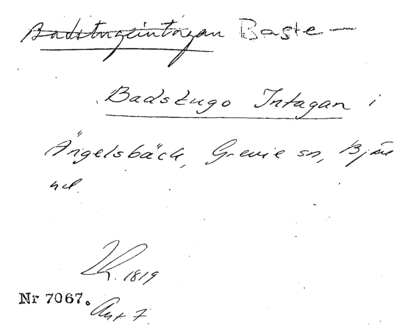 Badstugeintagan Baste-
Badstugo Intagan i
Ängelsbäck, Grevie sn, Bjäre
hd.
1819
Nr 7067.
Akt 7